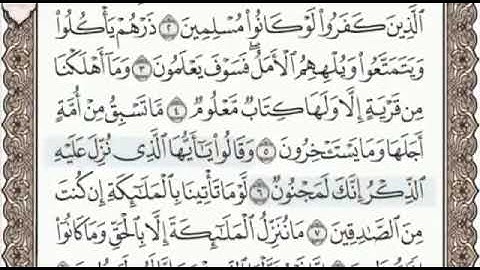 ٱلَّذِينَ كَفَرُوا۟ لَوْ كَانُوا۟ مُسْلِمِينَ ٢ ذَرْهُمْ يَأْكُلُوا۟
وَيَتَمَتَّعُوا۟ وَيُلْهِهِمُ ٱلْأَمَلُ ۖ فَسَوْفَ يَعْلَمُونَ ٣ وَمَآ أَهْلَكْنَا
مِن قَرْيَةٍ إِلَّا وَلَهَا كِتَابٌ مَّعْلُومٌ ٤ مَّا تَسْبِقُ مِنْ أُمَّةٍ
أَجَلَهَا وَمَا يَسْتَـْٔخِرُونَ ٥ وَقَالُوا۟ يَـٰٓأَيُّهَا ٱلَّذِى نُزِّلَ عَلَيْهِ
ٱلذِّكْرُ إِنَّكَ لَمَجْنُونٌ ٦ لَّوْ مَا تَأْتِينَا بِٱلْمَلَـٰٓئِكَةِ إِن كُنتَ
مِنَ ٱلصَّـٰدِقِينَ ٧ مَا نُنَزِّلُ ٱلْمَلَـٰٓئِكَةَ إِلَّا بِٱلْحَقِّ وَمَا كَانُوٓا۟